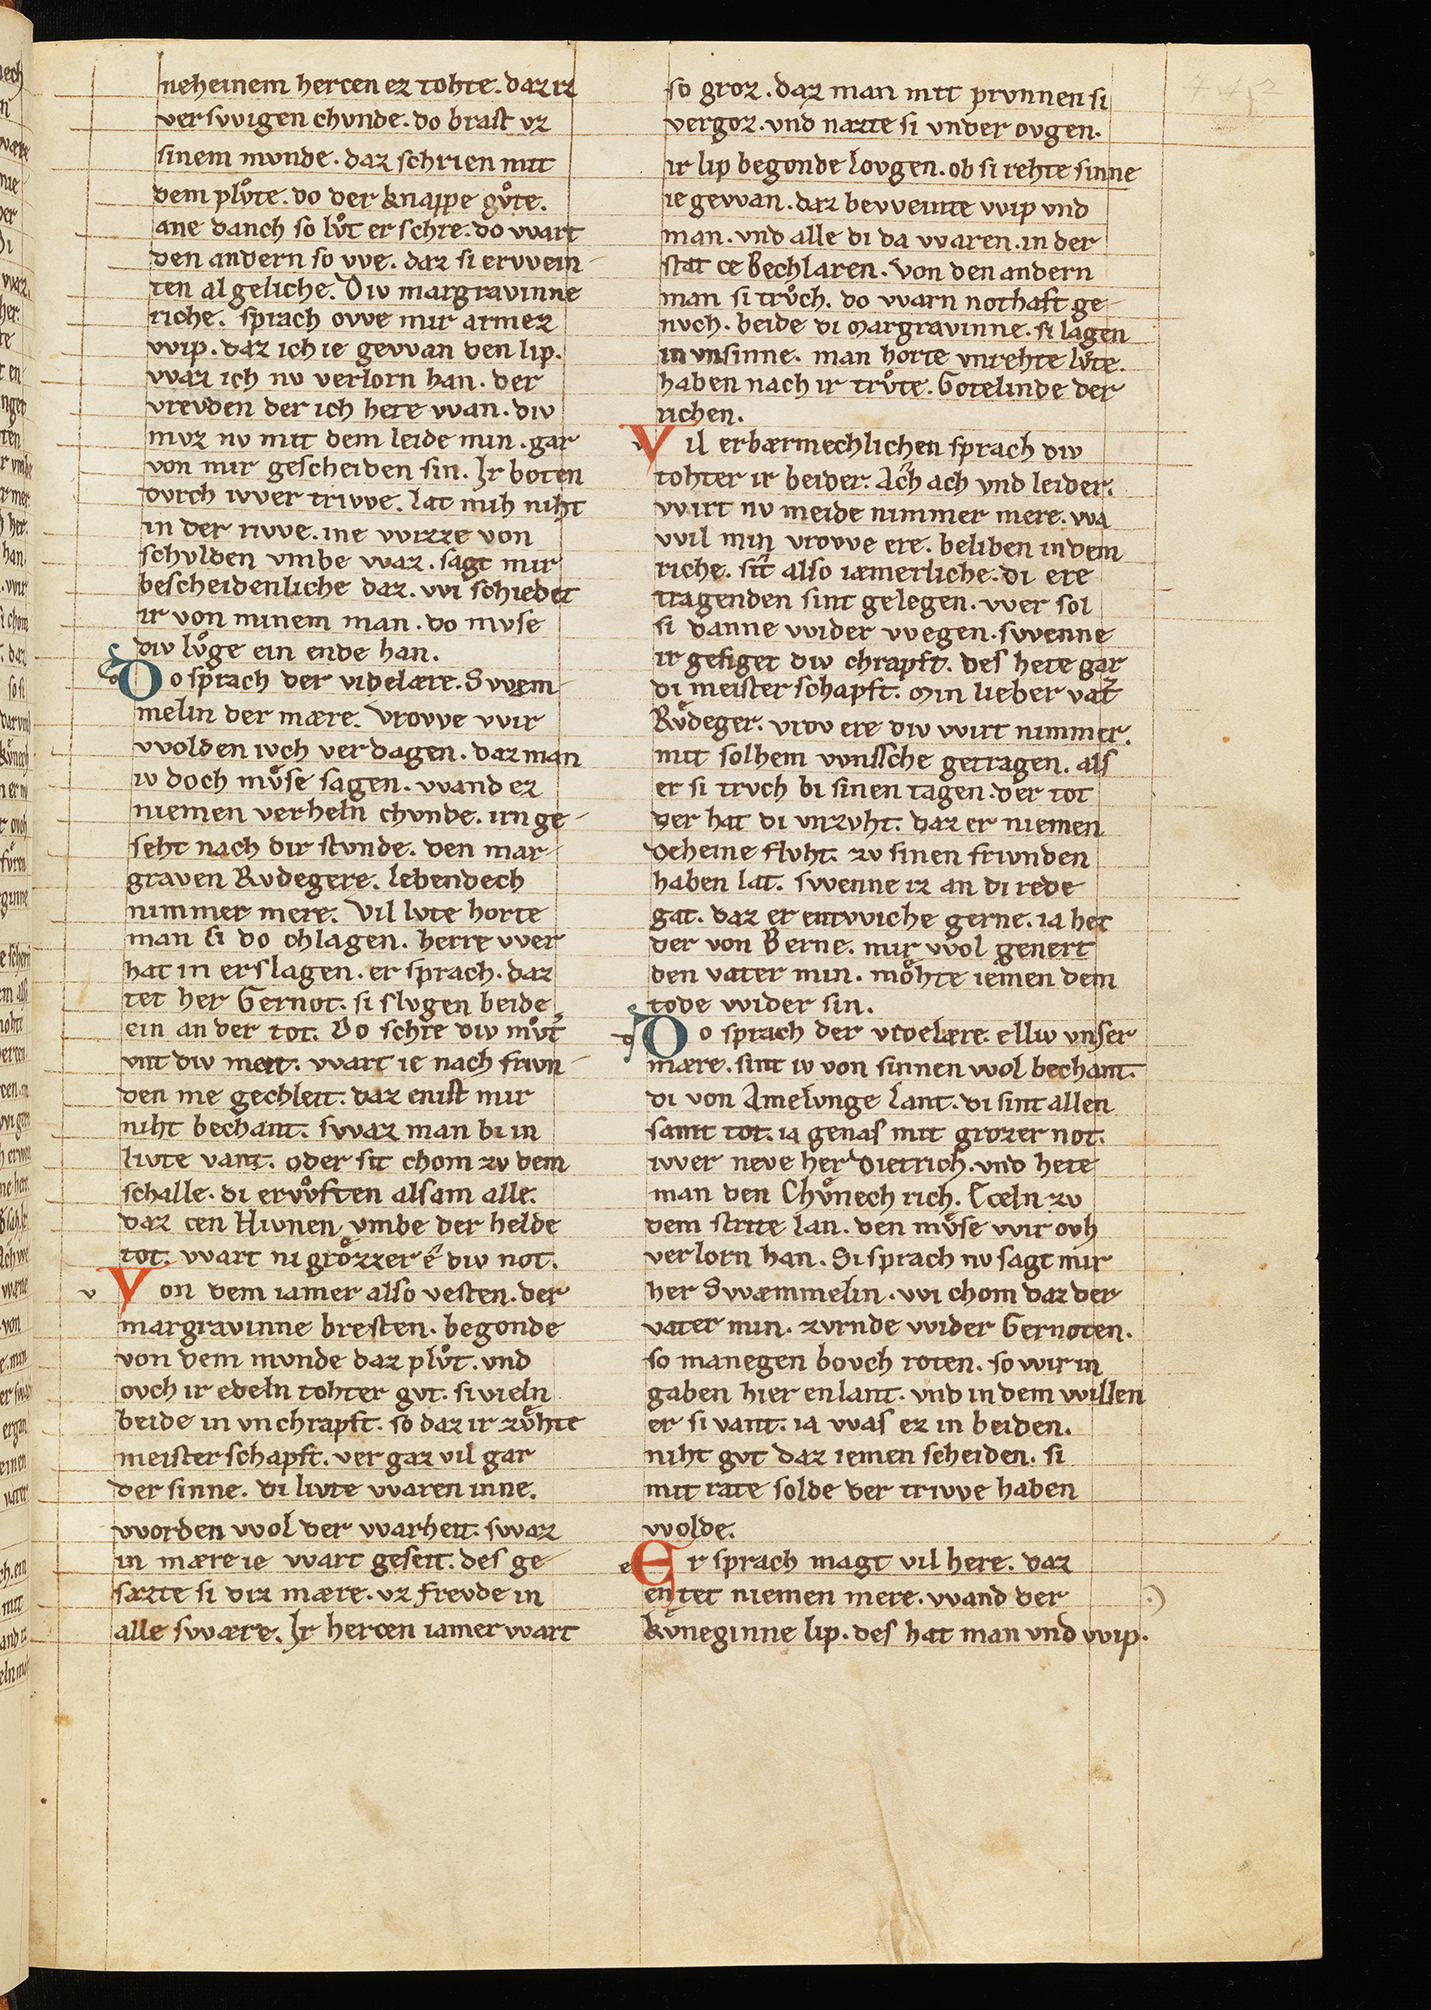 neheinem hercen ez tohte. daz iz
verswigen chunde. do brast vz
sinem mvnde. daz schrien mit
dem plůte. do der knappe gůte.
ane danch so lůt erschre. do wart
den andern so we. daz si erwein-
ten al geliche. Div margravinne
riche. sprach owe mir armez
wip. daz ich ie gewan den lip.
waz ich nv verlorn han. der
vrevden der ich hete wan. div
mvz nv mit dem leide min. gar
von mir gescheiden sin. Ir boten
dvrch iwer triwe. lat mih niht
in der riwe. ine wizze von
schvlden vmbe waz. sagt mir
bescheidenliche daz. wi schiedet
ir von minem man. do mvse
div lůge ein ende han.
Do sprach der videlære. Swem-
melin der mære. vrowe wir
wolden ivch verdagen. daz man
iv doch můse sagen. wand ez
niemen verheln chvnde. irn ge-
seht nach dir stvnde. den mar-
graven Rvdegere. lebendech
nimmer mere. Vil lvte horte
man si do chlagen. herre wer
hat in erslagen. er sprach. daz
tet her Gernot. si slvgen beide
ein an der tot. Do schre div můt
vnt div meit. wart ie nach frivn-
den me gechleit. daz enist mir
niht bechant. swaz man bi in
livte vant. oder sit chom zv dem
schalle. di erwůften alsam alle.
daz cen Hivnen vmbe der helde
tot. wart ni grözzer ê div not.
Von dem iamer also vesten. der
margravinne bresten. begonde
von dem mvnde daz plůt. vnd
ovch ir edeln tohter gvt. si vieln
beide in vnchrapft. so daz ir zvhte
meisterschapft. vergaz vil gar
der sinne. di livte waren inne.
worden wol der warheit. swaz
in mære ie wart geseit. des ge-
sazte si diz mære. vz frevde in
alle swære. Ir hercen iamer wart
so groz. daz man mit prvnnen si
vergoz. vnd nazte si vnder ovgen.
ir lip begonde lovgen. ob si rehte sinne
ie gewan. daz beweinte wip vnd
man. vnd alle di da waren. in der
stat ce Bechlaren. von den andern
man si trůch. do warn nothaft ge-
nvch. beide di margravinne. si lagen
in vnsinne. man horte vnrehte lůte.
haben nach ir trůte. Gotelinde der
richen.
Vil erbærmechlichen sprach div
tohter ir beider. Ach ach vnd leider.
wirt nv meide nimmer mere. wa
wil min vrowe ere. beliben in dem
riche. sît also iæmerliche. di ere
tragenden sint gelegen. wer sol
si danne wider wegen. swenne
ir gesiget div chrapft. des hete gar
di meisterschapft. min lieber vat
Růdeger. vrov ere div wirt nimmer.
mit solhem wnssche getragen. als
er si trvch bi sinen tagen. der tot
der hat di vnzvht. daz er niemen
deheine flvht. zv sinen frivnden
haben lat. swenne iz an di rede
gat. daz er entwiche gerne. ia het
der von Berne. mir wol genert
den vater min. möhte iemen dem
tode wider sin.
Do sprach der videlære. elliv vnser
mære. sint iv von sinnen wol bechant.
di von Amelvnge lant. di sint allen
samt tot. ia genas mit grozer not.
iwer neve her Dietrich. vnd hete
man den Chůnech rich. Eceln zv
dem strite lan. den můse wir ovh
verlorn han. Si sprach nv sagt mir
her Swæmmelin. wi chom daz der
vater min. zvrnde wider Gernoten.
so manegen bovch roten. so wir in
gaben hier en lant. vnd in dem willen
er si vant. ia was ez in beiden.
niht gvt daz iemen scheiden. si
mit rate solde der triwe haben
wolde.
Er sprach magt vil here. daz
entet niemen mere. wand der
kůneginne lip. des hat man vnd wip.